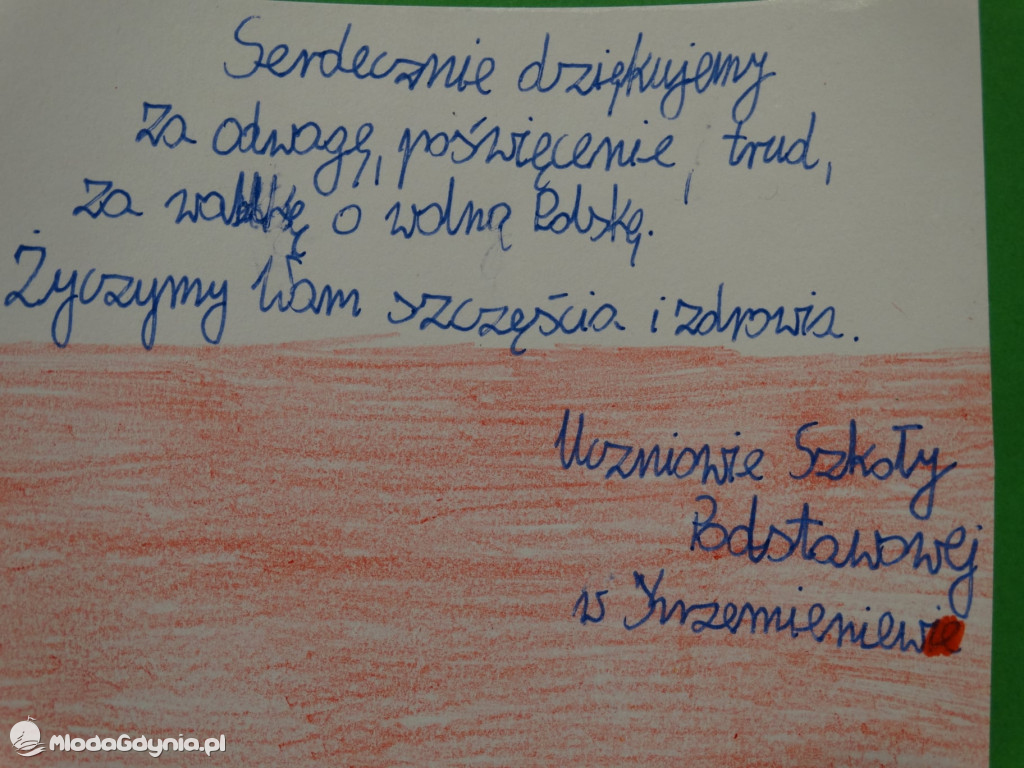 Serdecznie dziękujemy
za odwagę, poświęcenie, trud,
za walkę o wolną Polskę.
Życzymy Wam szczęścia i zdrowia.
Uczniowie Szkoły
Podstawowej
w Krzemieniewie
MlodaGdynia.pl